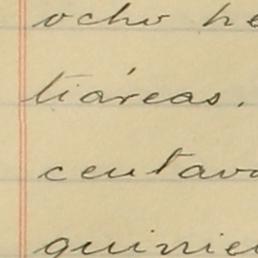 ocho he
tiáreas.
centavo
quinien